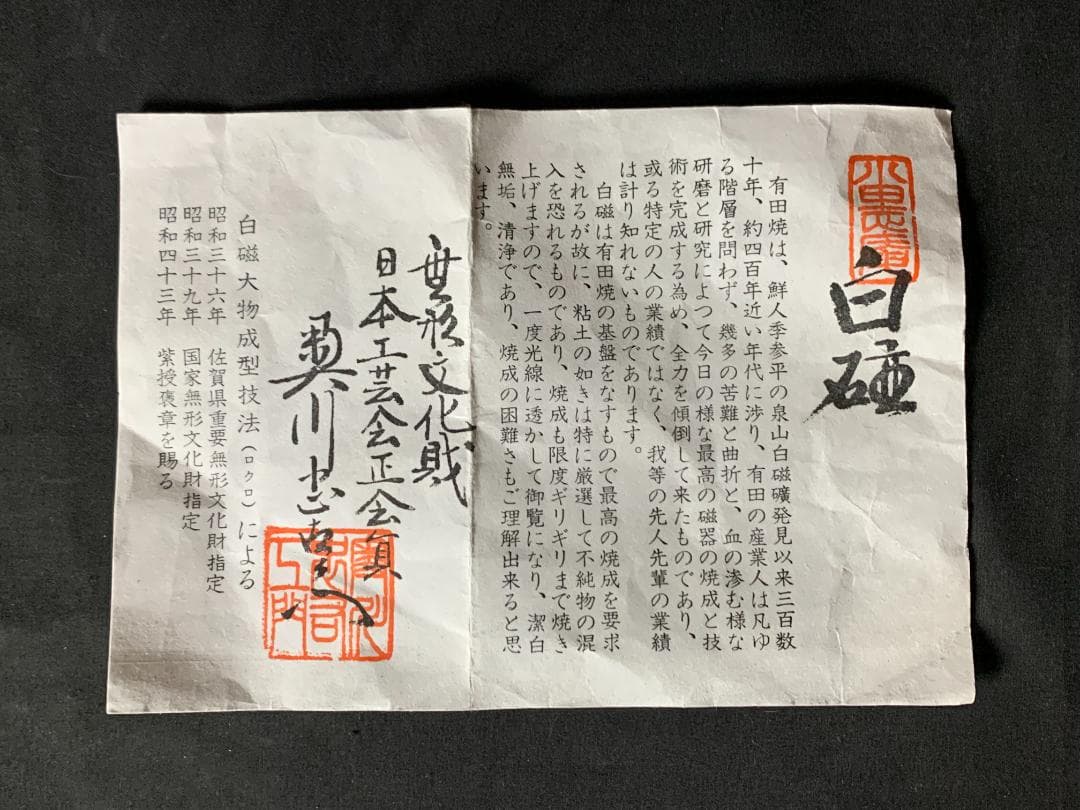 白磁
有田焼は、鮮人季参平の泉山白磁礦発見以来三百数
十年、約四百年近い年代に渉り、有田の産業人は凡ゆ
る階層を問わず、幾多の苦難と曲折と、血の滲む様な
研磨と研究によつて今日の様な最高の磁器の焼成と技
術を完成する為め、全力を傾倒して来たものであり、
或る特定の人の業績ではなく、我等の先人先輩の業績
は計り知れないものであります。
白磁は有田焼の基盤をなすもので最高の焼成を要求
されるが故に、粘土の如きは特に厳選して不純物の混
入を恐れるものであり、焼成も限度ギリギリまで焼き
上げますので、一度光線に透かして御覧になり、潔白
無垢、清浄であり、焼成の困難さもご理解出来ると思
います。
無形文化財
日本工芸会正会員
奥川忠右エ門
白磁大物成型技法(ロクロ)による
昭和三十六年 佐賀県重要無形文化財指定
昭和三十九年 国家無形文化財指定
昭和四十三年 紫授褒章を賜る